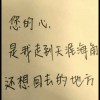 您的心，
是我走到天涯海角
还想回去的地方